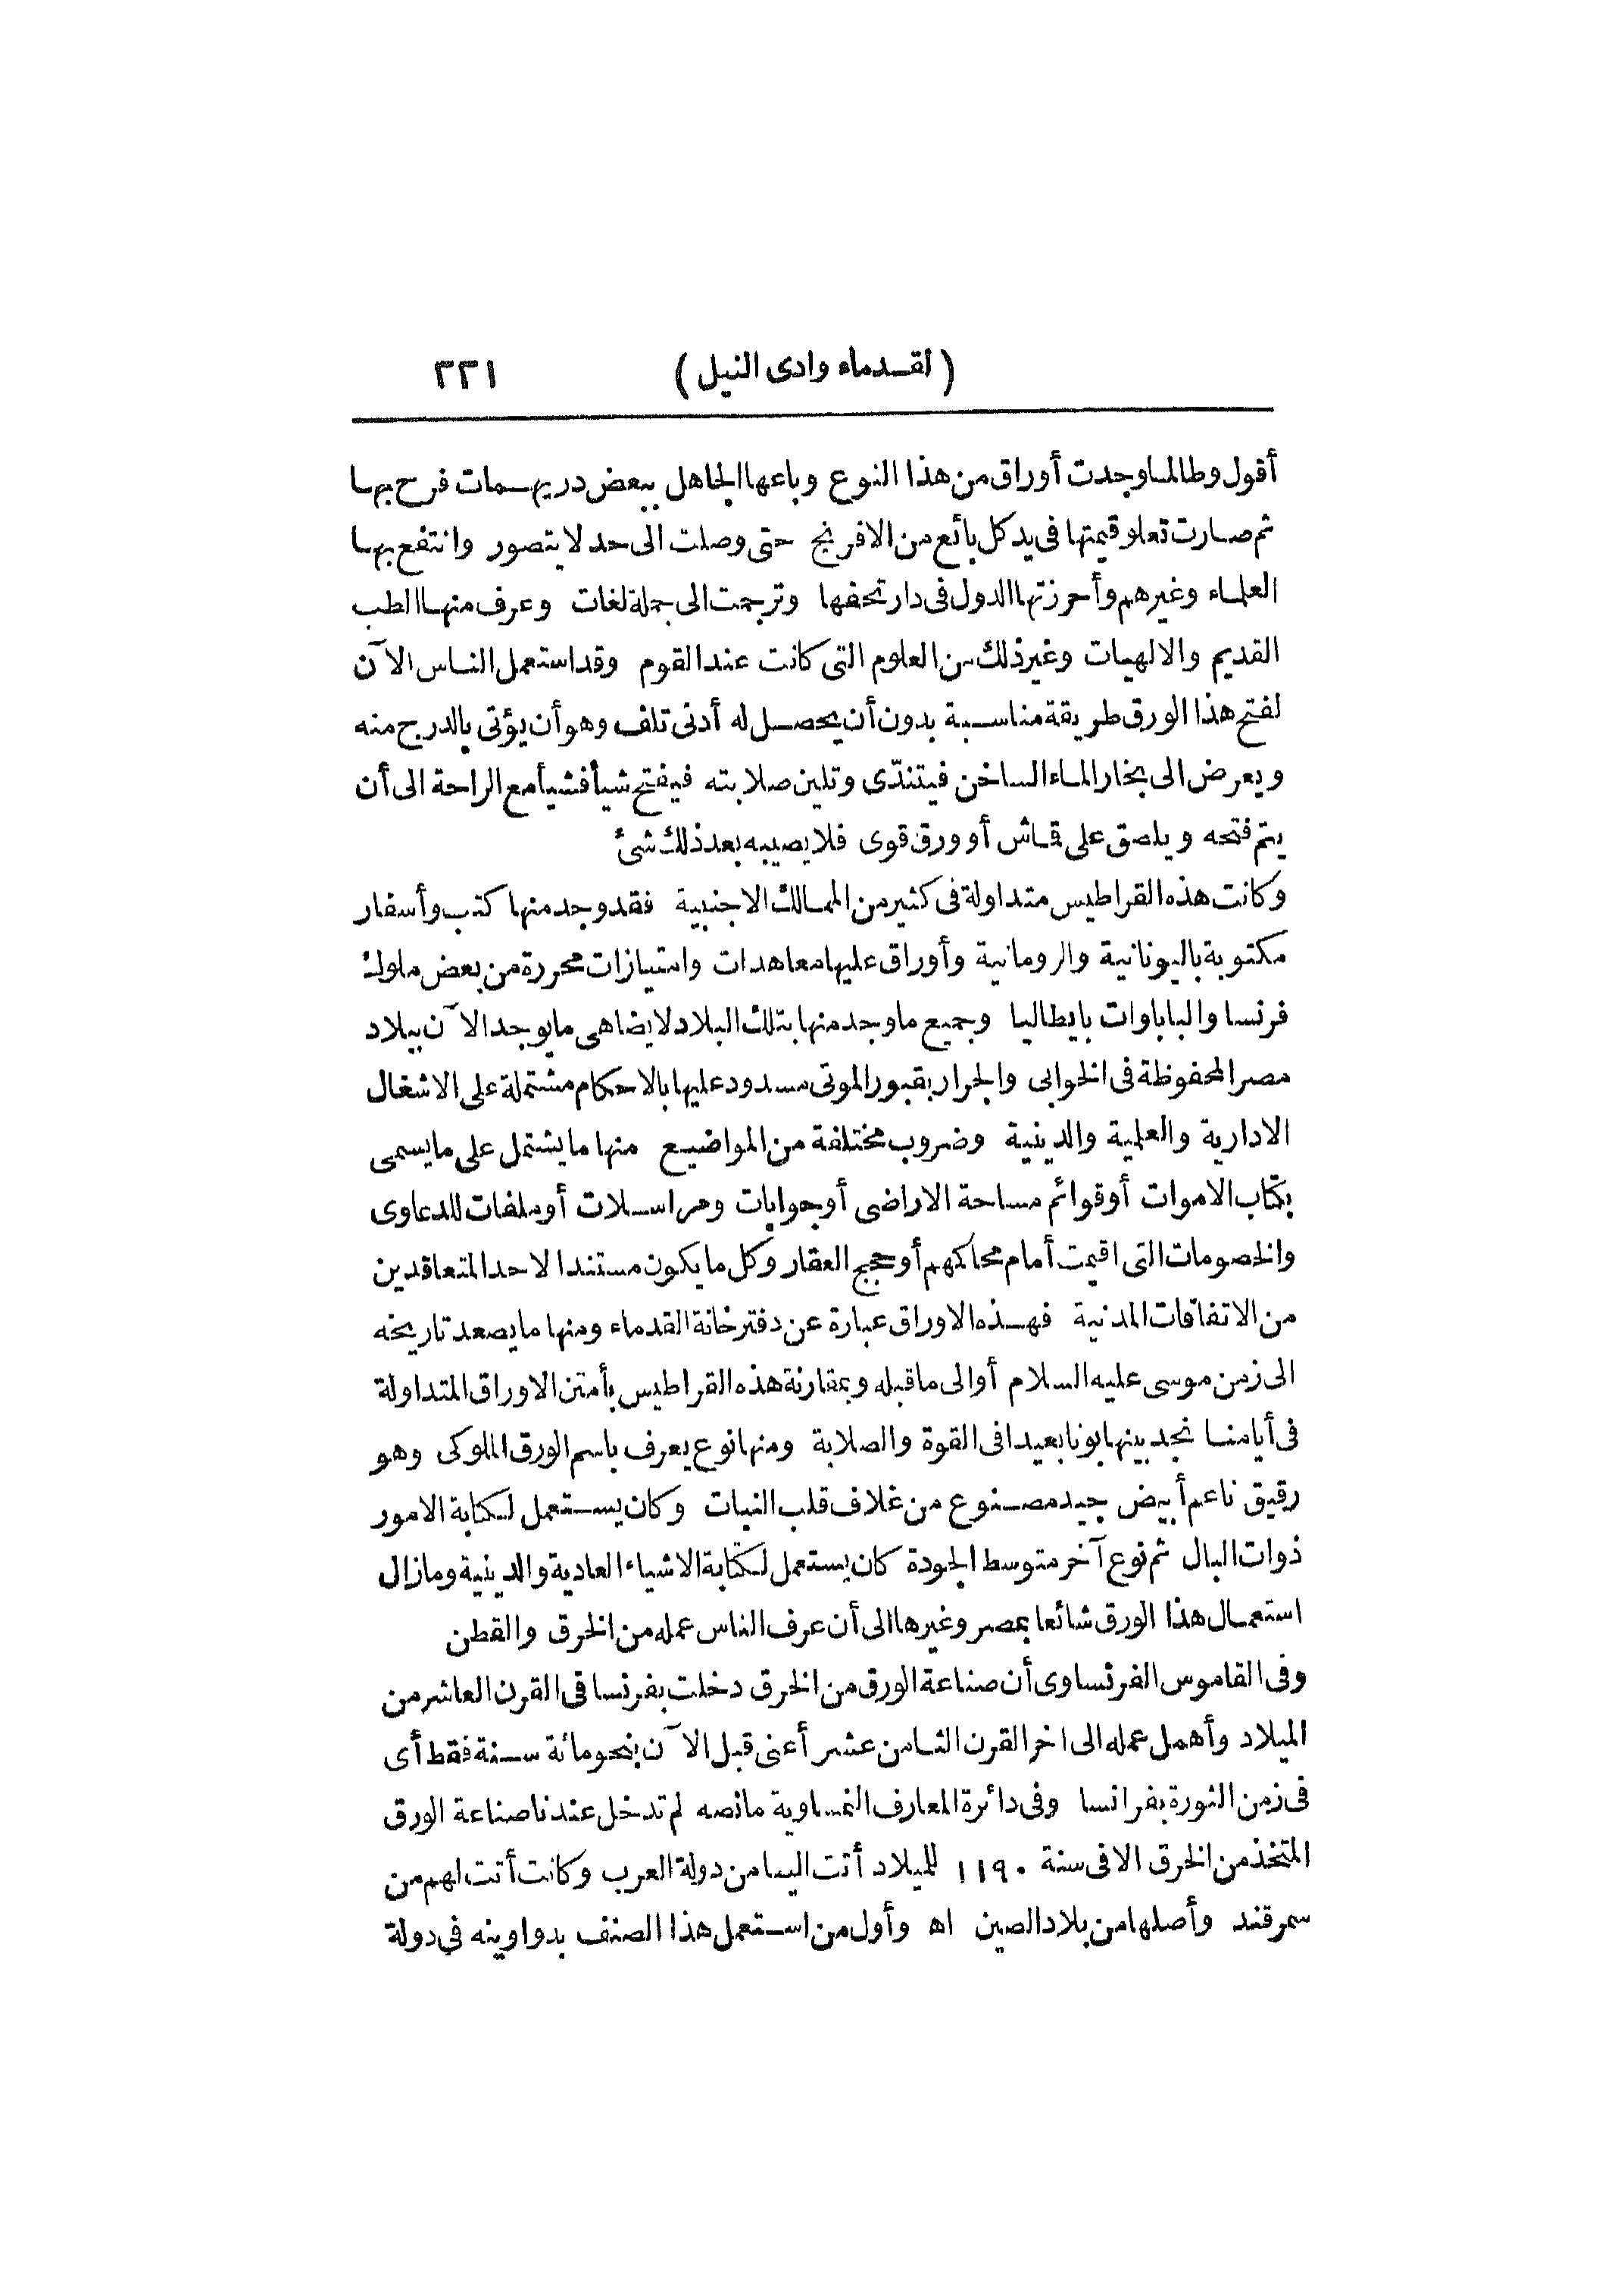 (لقدماء وادى النيل) ٢٢١
أقول وطالما وجدت أوراق من هذا النوع وباعها الجاهل ببعض دريهمات فرح بها
ثم صارت تعلو قيمتها فى يد كل بائع من الافرنج حتى وصلت الى حد لا يتصور وانتفع بها
العلماء وغيرهم وأحرزتها الدول فى دار تحفها وترجمت الى جملة لغات وعرف منها الطب
القديم والالهيات وغير ذلك من العلوم التى كانت عند القوم وقد استعمل الناس الآن
لفتح هذا الورق طريقة مناسبة بدون أن يحصل له أدنى تلف وهو أن يؤتى بالدرج منه
ويعرض الى بخار الماء الساخن فيتندّى وتلين صلابته فيفتح شيأ فشيأ مع الراحة الى أن
يتم فتحه ويلصق على قماش أو ورق قوى فلا يصيبه بعد ذلك شئ
وكانت هذه القراطيس متداولة فى كثير من الممالك الاجنبية فقد وجد منها كتب وأسفار
مكتوبة باليونانية والرومانية وأوراق عليها معاهدات وامتيازات محررة من بعض ملوك
فرنسا والباباوات بايطاليا وجميع ما وجد منها بتلك البلاد لا يضاهى ما يوجد الآن ببلاد
مصر المحفوظة فى الخوابى والجرار بقبور الموتى مسدود عليها بالاحكام مشتملة على الاشغال
الادارية والعلمية والدينية وضروب مختلفة من المواضيع منها ما يشتمل على ما يسمى
بكتاب الاموات أو قوائم مساحة الاراضى أو جوابات ومراسلات أو ملفات للدعاوى
والخصومات التى اقيمت أمام محاكمهم أو حجج العقار وكل ما يكون مستندا لاحد المتعاقدين
من الاتفاقات المدنية فهذه الاوراق عبارة عن دفترخانة القدماء ومنها ما يصعد تاريخه
الى زمن موسى عليه السلام أو الى ما قبله وبمقارنة هذه القراطيس بأمتن الاوراق المتداولة
فى أيامنا نجد بينها بونا بعيدا فى القوة والصلابة ومنها نوع يعرف باسم الورق الملوكى وهو
رقيق ناعم أبيض جيد مصنوع من غلاف قلب النبات وكان يستعمل لكتابة الامور
ذوات البال ثم نوع آخر متوسط الجودة كان يستعمل لكتابة الاشياء العادية والدينية ومازال
استعمال هذا الورق شائعا بمصر وغيرها الى أن عرف الناس عمله من الخرق والقطن
وفى القاموس الفرنساوى أن صناعة الورق من الخرق دخلت بفرنسا فى القرن العاشر من
الميلاد وأهمل عمله الى اخر القرن الثامن عشر أعنى قبل الآن بنحو مائة سنة فقط أى
فى زمن الثورة بفرانسا وفى دائرة المعارف النمساوية مانصه لم تدخل عندنا صناعة الورق
المتخذ من الخرق الا فى سنة ١١٩٠ للميلاد أتت الينا من دولة العرب وكانت أتت لهم من
سمرقند وأصلها من بلاد الصين اه وأول من استعمل هذا الصنف بدواوينه فى دولة